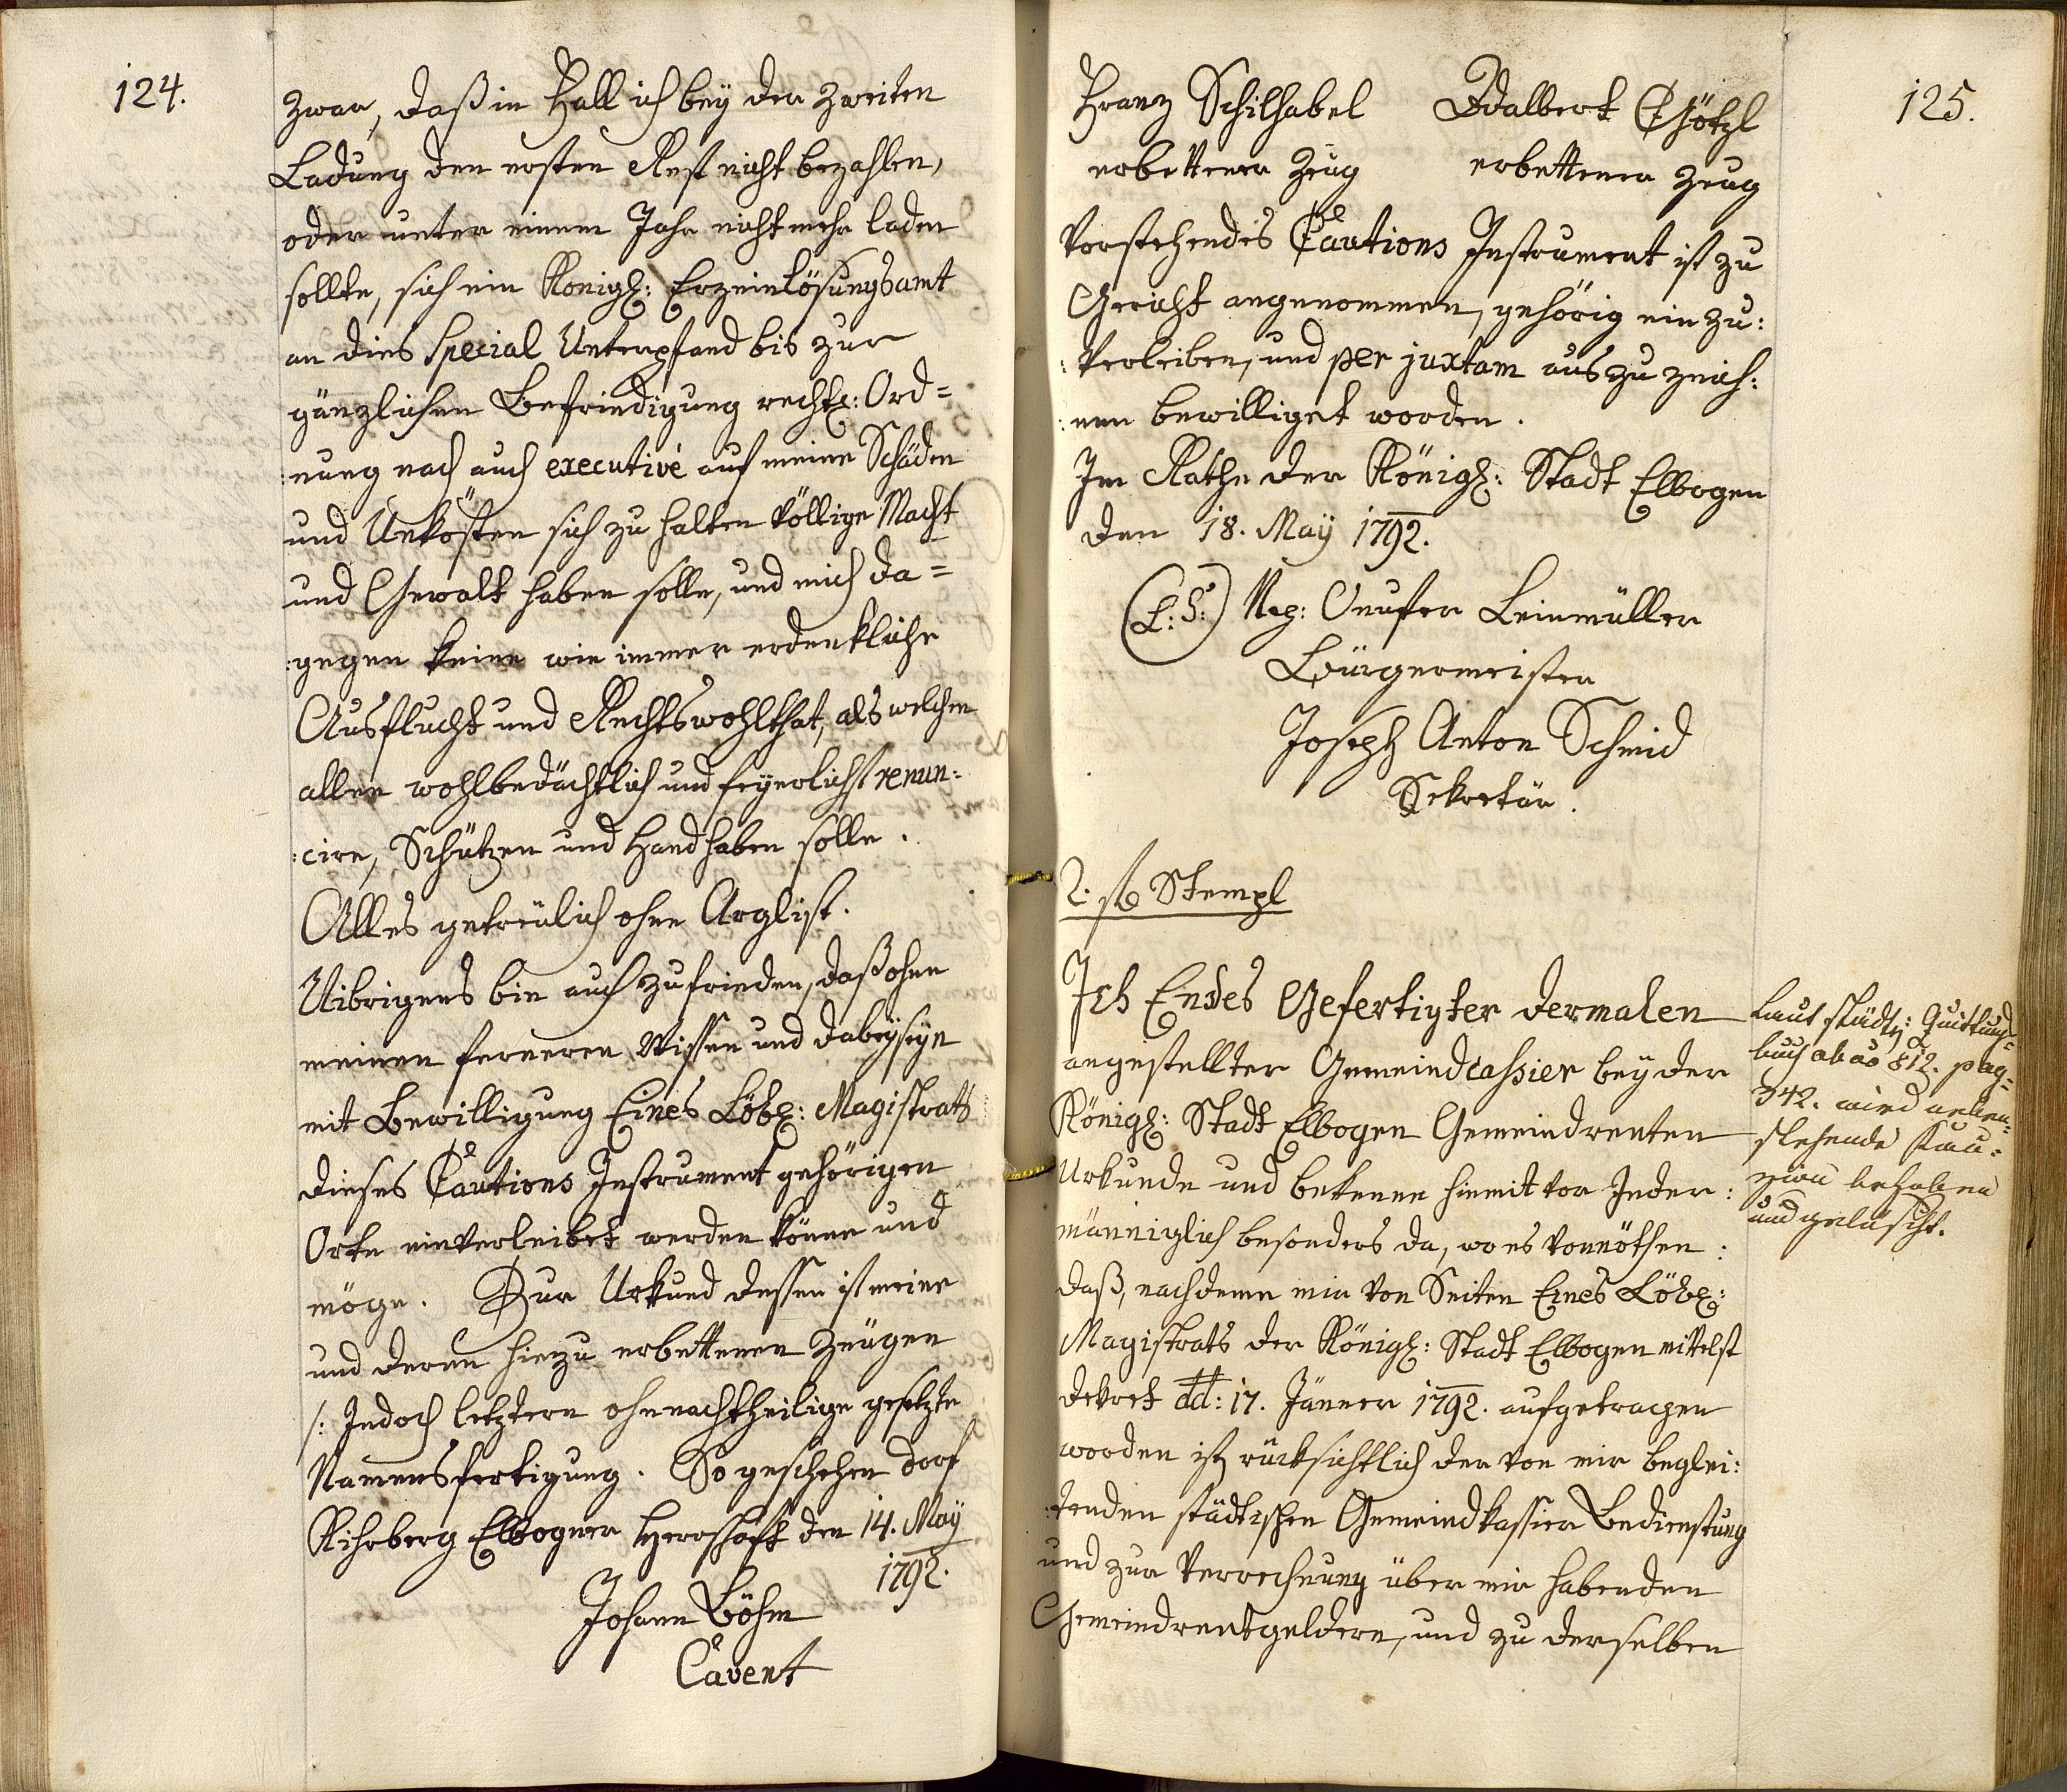 124.
zwar, daß in Fall ich bey der zweiten
Ladung den ersten Rest nicht bezahlen,
oder unter einem Jahr nicht mehr laden
sollte, sich ein Königl: Erzeinlösungsamt
an dies Special Unterpfand bis zur
gänzlichen Befriedigung rechtl: Ord=
:nung nach auch executivè auf meine Schäden
und Unkösten sich zu halten völlige Macht
und Gewalt haben solle, und mich da=
:gegen keine wie immer erdenkliche
Ausflucht und Rechtswohlthat, als welchen
allen wohlbedächtlich und feyerlichst renun:
:cire, Schützen und Handhaben solle.
Alles getreülich ohne Arglist.
Uibrigens bin auch zufrieden, daß ohne
meinen ferneren Wissen und dabeyseyn
mit Bewilligung Eines Löbl: Magistrats
dieses Cautions Instrument gehörigen
Orts einverleibet werden könne und
möge. Zur Urkund dessen ist meine
und deren hiezu erbettenen Zeügen
/: Jedoch letztern ohnnachtheilige gesetzte
Namensfertigung. So geschehen Dorf
Kihrberg Elbogner Herrschaft den 14. May
1792.
Johann Böhm
Cavent
125.
Franz Schilhabel Adalbert Götzl
erbettener Zeug erbettener Zeug
Vorstehendes Cautions Instrument ist zu
Gericht angenommen, gehörig ein zu:
:Verleiben, und per juxtam aus zu zeich:
:nen bewilliget worden.
Im Rathe der Königl: Stadt Elbogen
den 18. May 1792.
(L: S:) Onufer Leinmüller
Bürgermeister
Joseph Anton Schmid
Sekretär.
2. Stempl
Ich Endes Gefertigter dermalen
angestellter Gemeindcassier bey der
Königl: Stadt Elbogen Gemeindrenten
Urkunde und bekenne hiemit vor Jeder:
männiglich besonders da, wo es vonnöthen:
daß, nachdeme mir von Seiten Eines Löbl:
Magistrats der Königl: Stadt Elbogen mittelst
Dekret dd: 17. Jänner 1792. aufgetragen
worden ist, rücksichtlich der von mir beglei:
:tenden städtischen Gemeindkassier Bedienstung
und zur Verrechnung über mir habenden
Gemeindrentgeldern, und zu derselben
Laut städt: Quittungs=
buch ab aõ 812. pag=
342. wird neben=
stehende Kau=
zion behoben
und gelöscht.